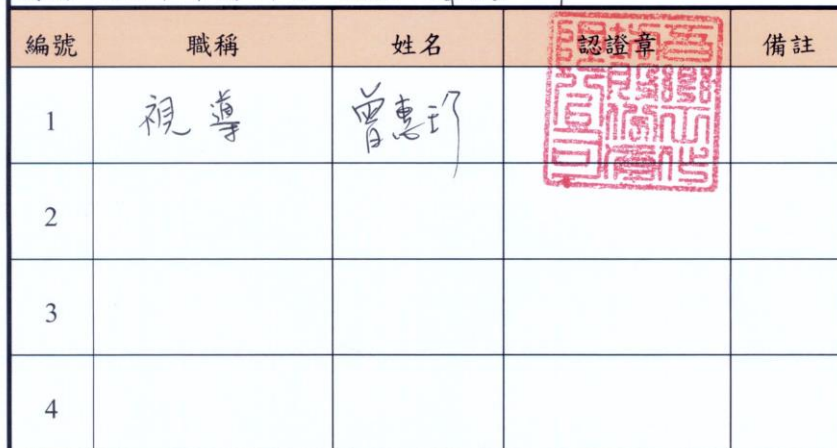 編號 職稱 姓名 認證章 備註
1 視導 曾惠珍
2
3
4